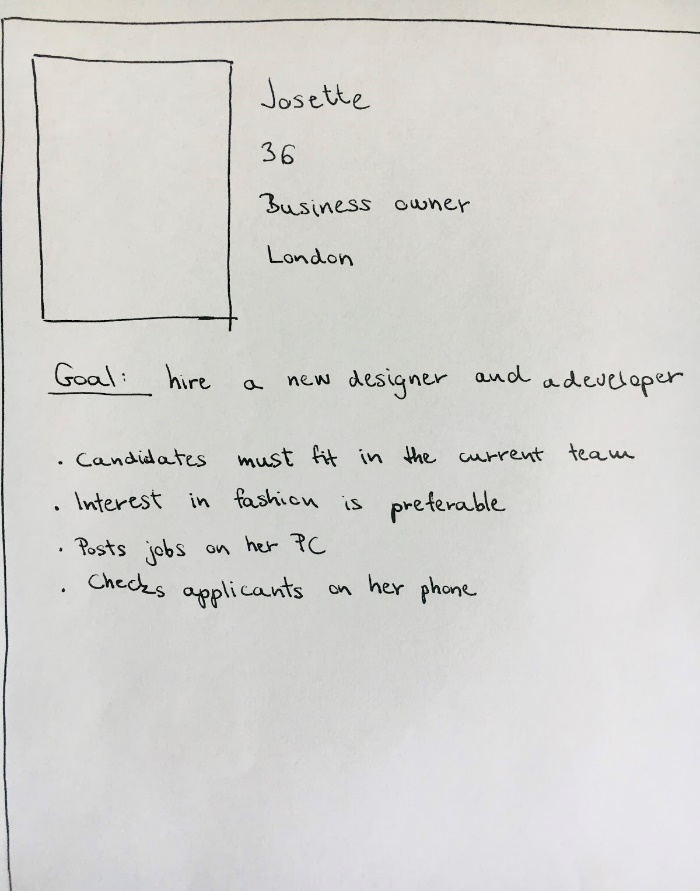 Josette
36
Business owner
London
Goal: hire a new designer and a developer
· Candidates must fit in the current team
· Interest in fashion is preferable
· Posts jobs on her PC
· Checks applicants on her phone